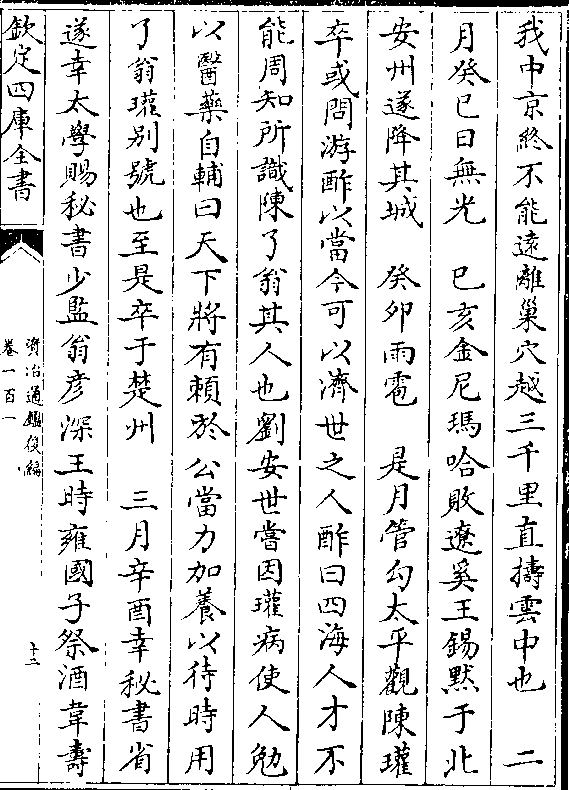 我中京終不能遠離巢穴越三千里直擣雲中也　二
月癸巳日無光　已亥金尼瑪哈敗遼奚王錫默于北
安州遂降其城　癸卯雨雹　是月管勾太平觀陳瓘
卒或問游酢以當今可以濟世之人酢曰四海人才不
能周知所識陳了翁其人也劉安世嘗因瓘病使人勉
以醫藥自輔曰天下將有賴於公當力加養以待時用
了翁瓘别號也至是卒于楚州　三月辛酉幸秘書省
遂幸太學賜秘書少監翁彦深王時雍國子祭酒韋壽
欽定四庫全書
資治通鑑後編
卷一百一
十三